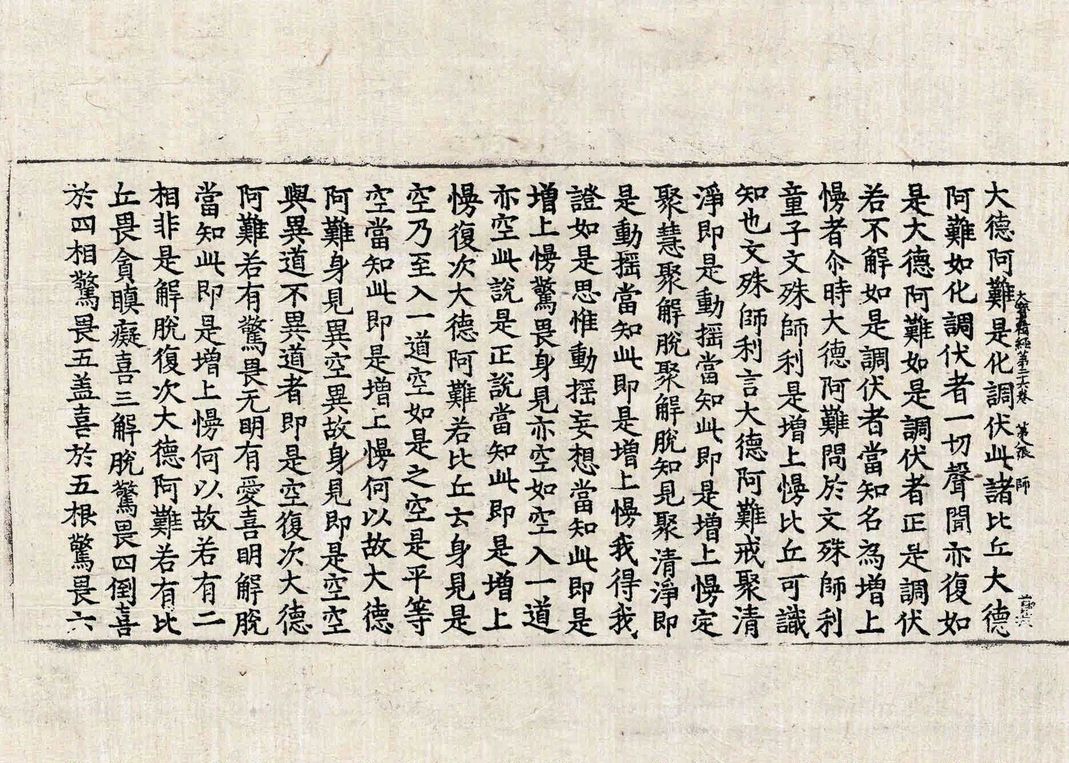 大德阿難是化調伏此諸比丘大德
阿難如化調伏者一切聲聞亦復如
是大德阿難如是調伏者正是調伏
若不解如是調伏者當知名為增上
慢者尒時大德阿難問於文殊師利
童子文殊師利是增上慢比丘可識
知也文殊師利言大德阿難戒聚清
淨即是動搖當知此即是增上慢定
聚慧聚解脫聚解脫知見聚清淨即
是動搖當知此即是增上慢我得我
證如是思惟動搖妄想當知此即是
增上慢驚畏身見亦空如空入一道
亦空此說是正說當知此即是增上
慢復次大德阿難若比丘去身見是
空乃至入一道空如是之空是平等
空當知此即是增上慢何以故大德
阿難身見異空異故身見即是空空
與異道不異道者即是空復次大德
阿難若有驚畏无明有愛喜明解脫
當知此即是增上慢何以故若有二
相非是解脫復次大德阿難若有比
丘畏貪瞋癡喜三解脫驚畏四倒喜
於四相驚畏五盖喜於五根驚畏六
大寶積經第二十六卷 第张 師